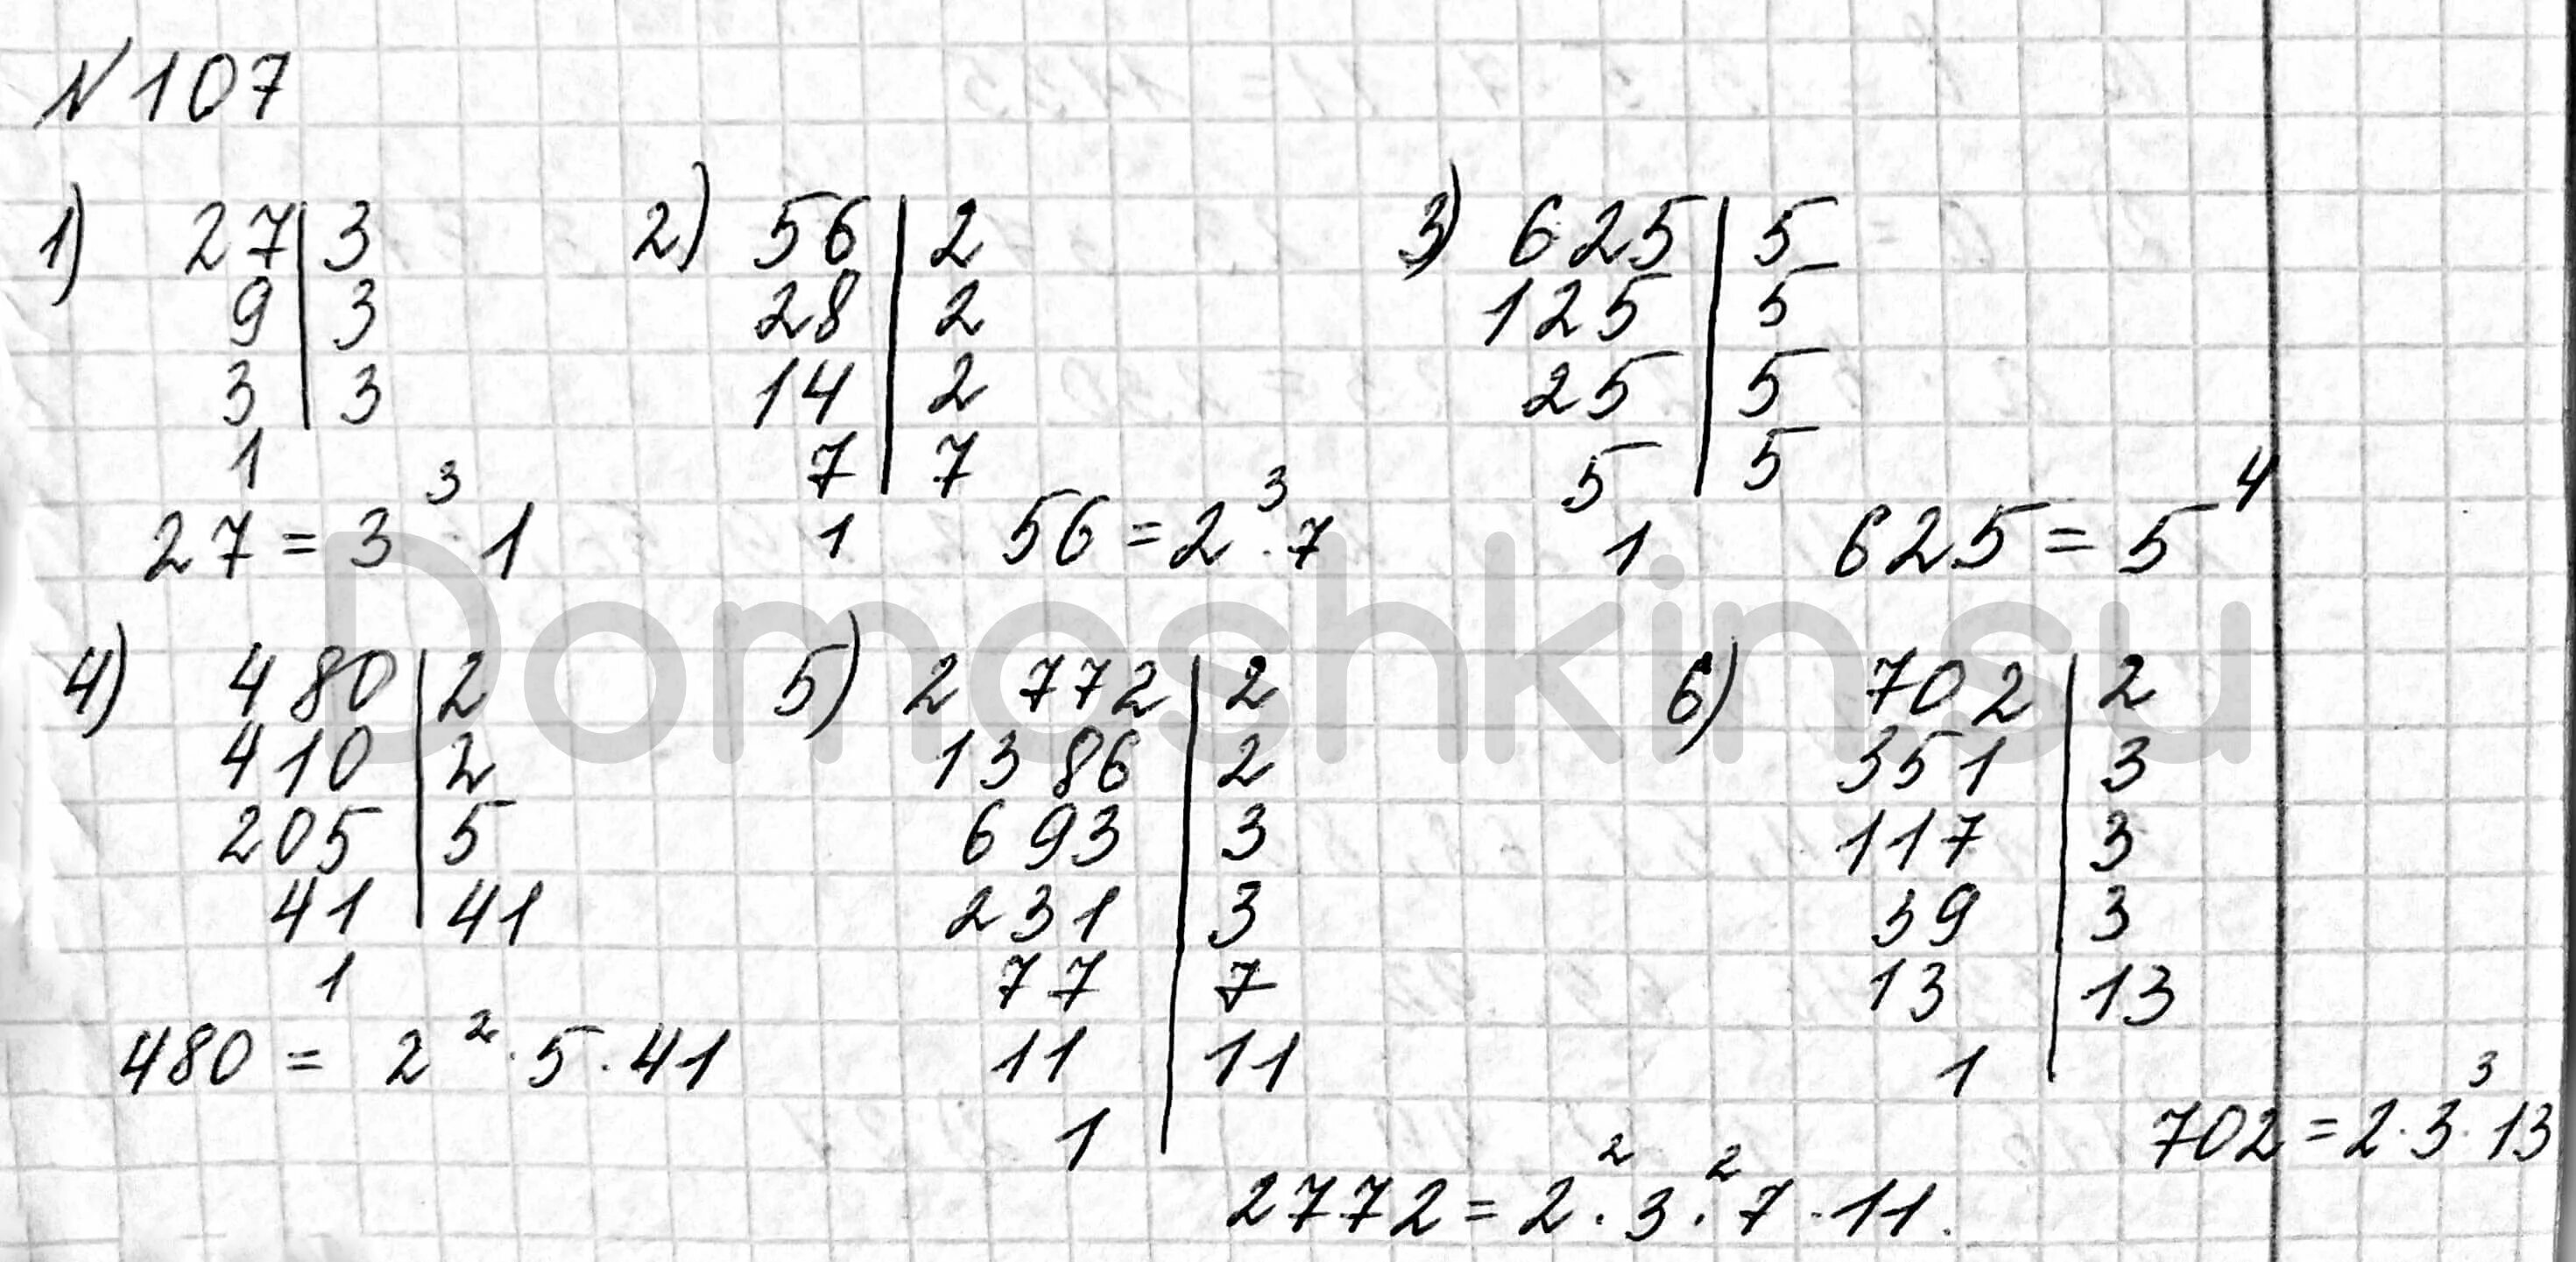 N 107
1) 27 | 3
9 | 3
3 | 3
1
27 = 3³ · 1
2) 56 | 2
28 | 2
14 | 2
7 | 7
1
56 = 2³ · 7
3) 625 | 5
125 | 5
25 | 5
5 | 5
1
625 = 5⁴
4) 480 | 2
410 | 2
205 | 5
41 | 41
1
480 = 2² · 5 · 41
5) 2 772 | 2
1386 | 2
693 | 3
231 | 3
77 | 7
11 | 11
1
2772 = 2² · 3² · 7 · 11.
6) 702 | 2
351 | 3
117 | 3
39 | 3
13 | 13
1
702 = 2 · 3³ · 13
Domoshkin.su